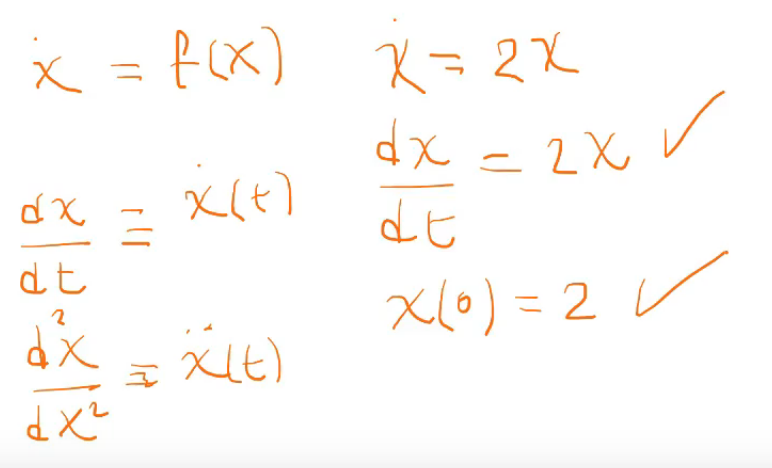 ẋ = f(x)
dx/dt ≡ ẋ(t)
d²x/dx² ≡ ẍ(t)
ẋ = 2x
dx/dt = 2x ✓
x(0) = 2 ✓